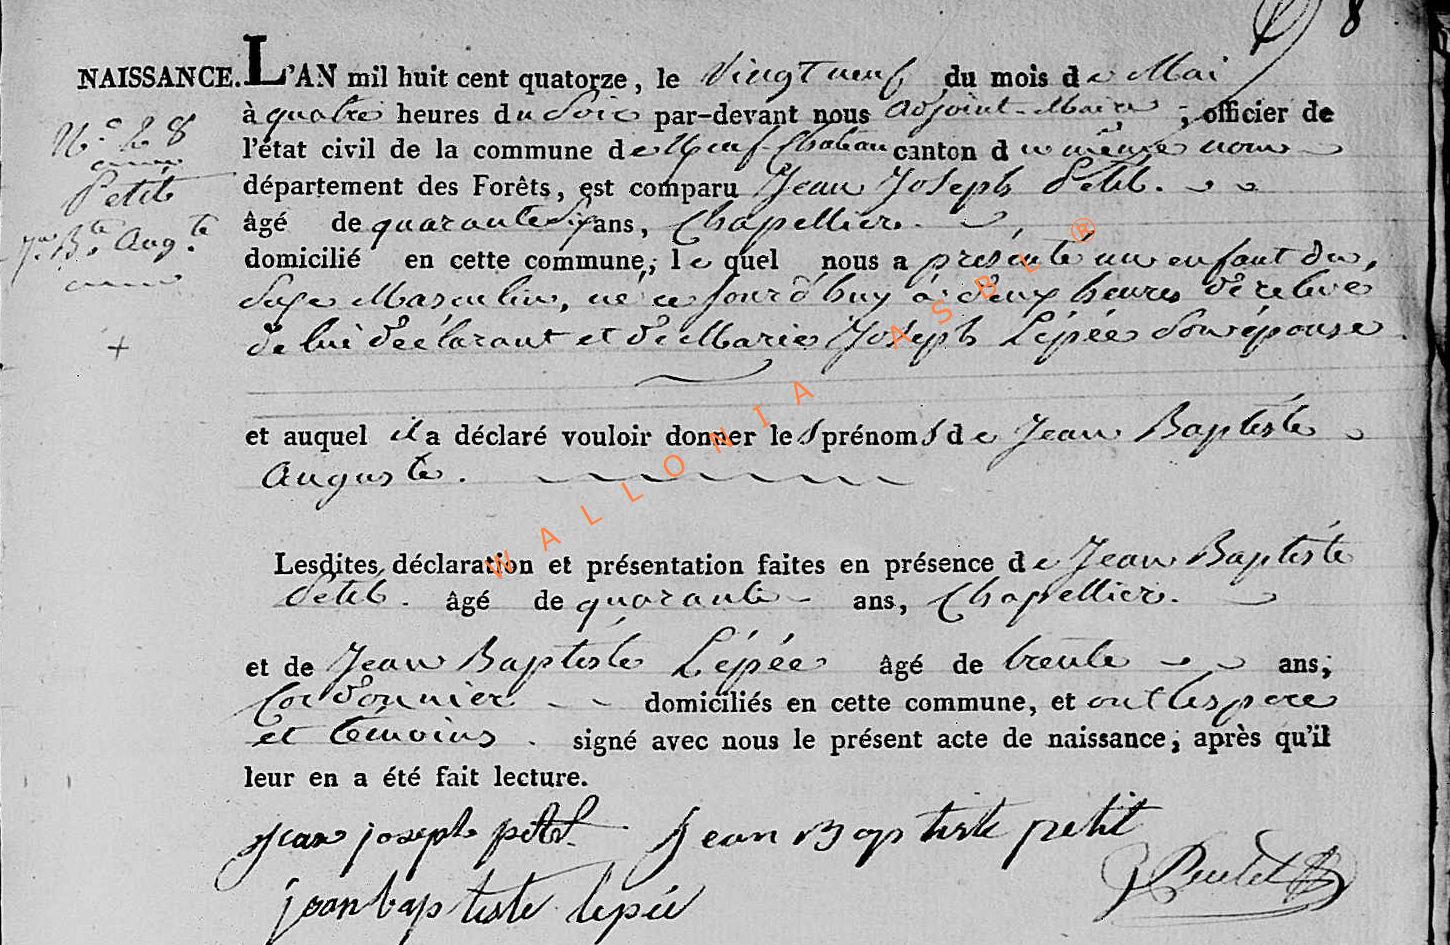 8
NAISSANCE. L'AN mil huit cent quatorze, le vingt neuf du mois de Mai
à quatre heures du Soir par-devant nous adjoint-Maire ; officier de
N.° 28
l'état civil de la commune de Neuf-Chateau canton du même nom
Petit
département des Forêts, est comparu Jean Joseph Petit.
Jn. Bte. Augte.
âgé de quarante six ans, Chapellier.
domicilié en cette commune, ; le quel nous a présenté un enfant du
Sexe Masculin, né ce jour d'huy à deux heures de relevée
de lui déclarant et de Marie Joseph Lépée Son épouse
et auquel il a déclaré vouloir donner les prénoms de Jean Baptiste
Auguste.
Lesdites déclaration et présentation faites en présence de Jean Baptiste
Petit. âgé de quarante ans, Chapellier.
et de Jean Baptiste Lépée âgé de trente ans,
Cordonnier domiciliés en cette commune, et ont les pere
et temoins signé avec nous le présent acte de naissance ; après qu'il
leur en a été fait lecture.
jean joseph petit. jean Baptiste petit
jean baptiste lepée
WALLONIA ASBL ®